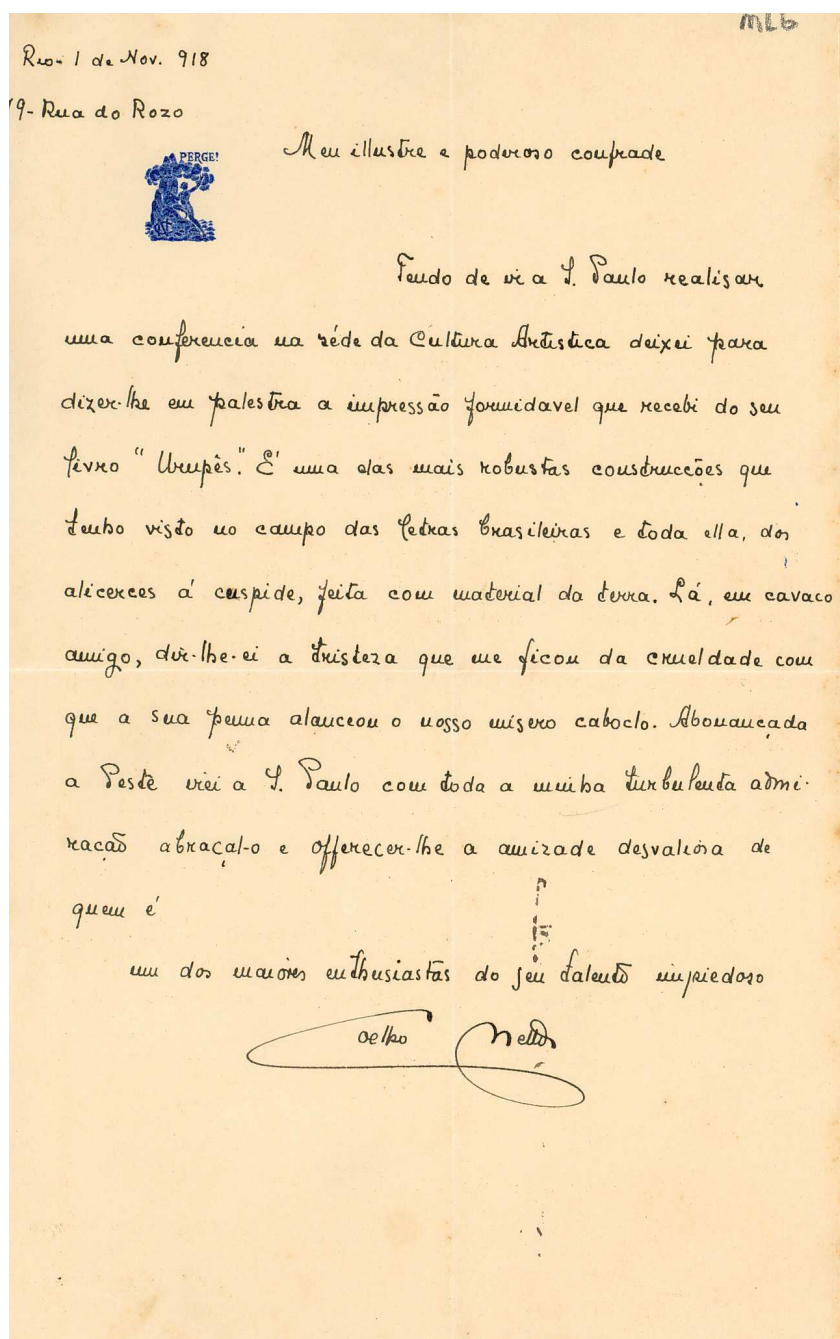 MLb
Rio - 1 de Nov. 918
79 - Rua do Rozo
PERGE!
Meu illustre e poderoso confrade
Tendo de ir a S. Paulo realisar
uma conferencia na séde da Cultura Artistica deixei para
dizer-lhe em palestra a impressão formidavel que recebi do seu
livro "Urupês". É uma das mais robustas construcções que
tenho visto no campo das letras brasileiras e toda ella, dos
alicerces á cuspide, feita com material da terra. Lá, em cavaco
amigo, dir-lhe-ei a tristeza que me ficou da crueldade com
que a sua penna alanceou o nosso misero caboclo. Abonançada
a Peste irei a S. Paulo com toda a minha turbulenta admi-
ração abraçal-o e offerecer-lhe a amizade desvaliosa de
quem é
um dos maiores enthusiastas do seu talento impiedoso
Coelho Netto